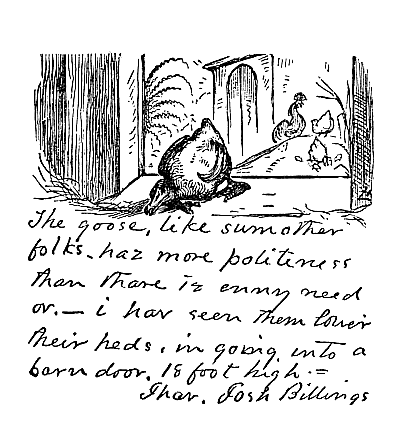 The goose, like sum other
folks. haz more politeness
than thare iz enny need
ov.— i hav seen them lower
their heds, in going into a
barn door. 18 foot high.=
Thar. Josh Billings